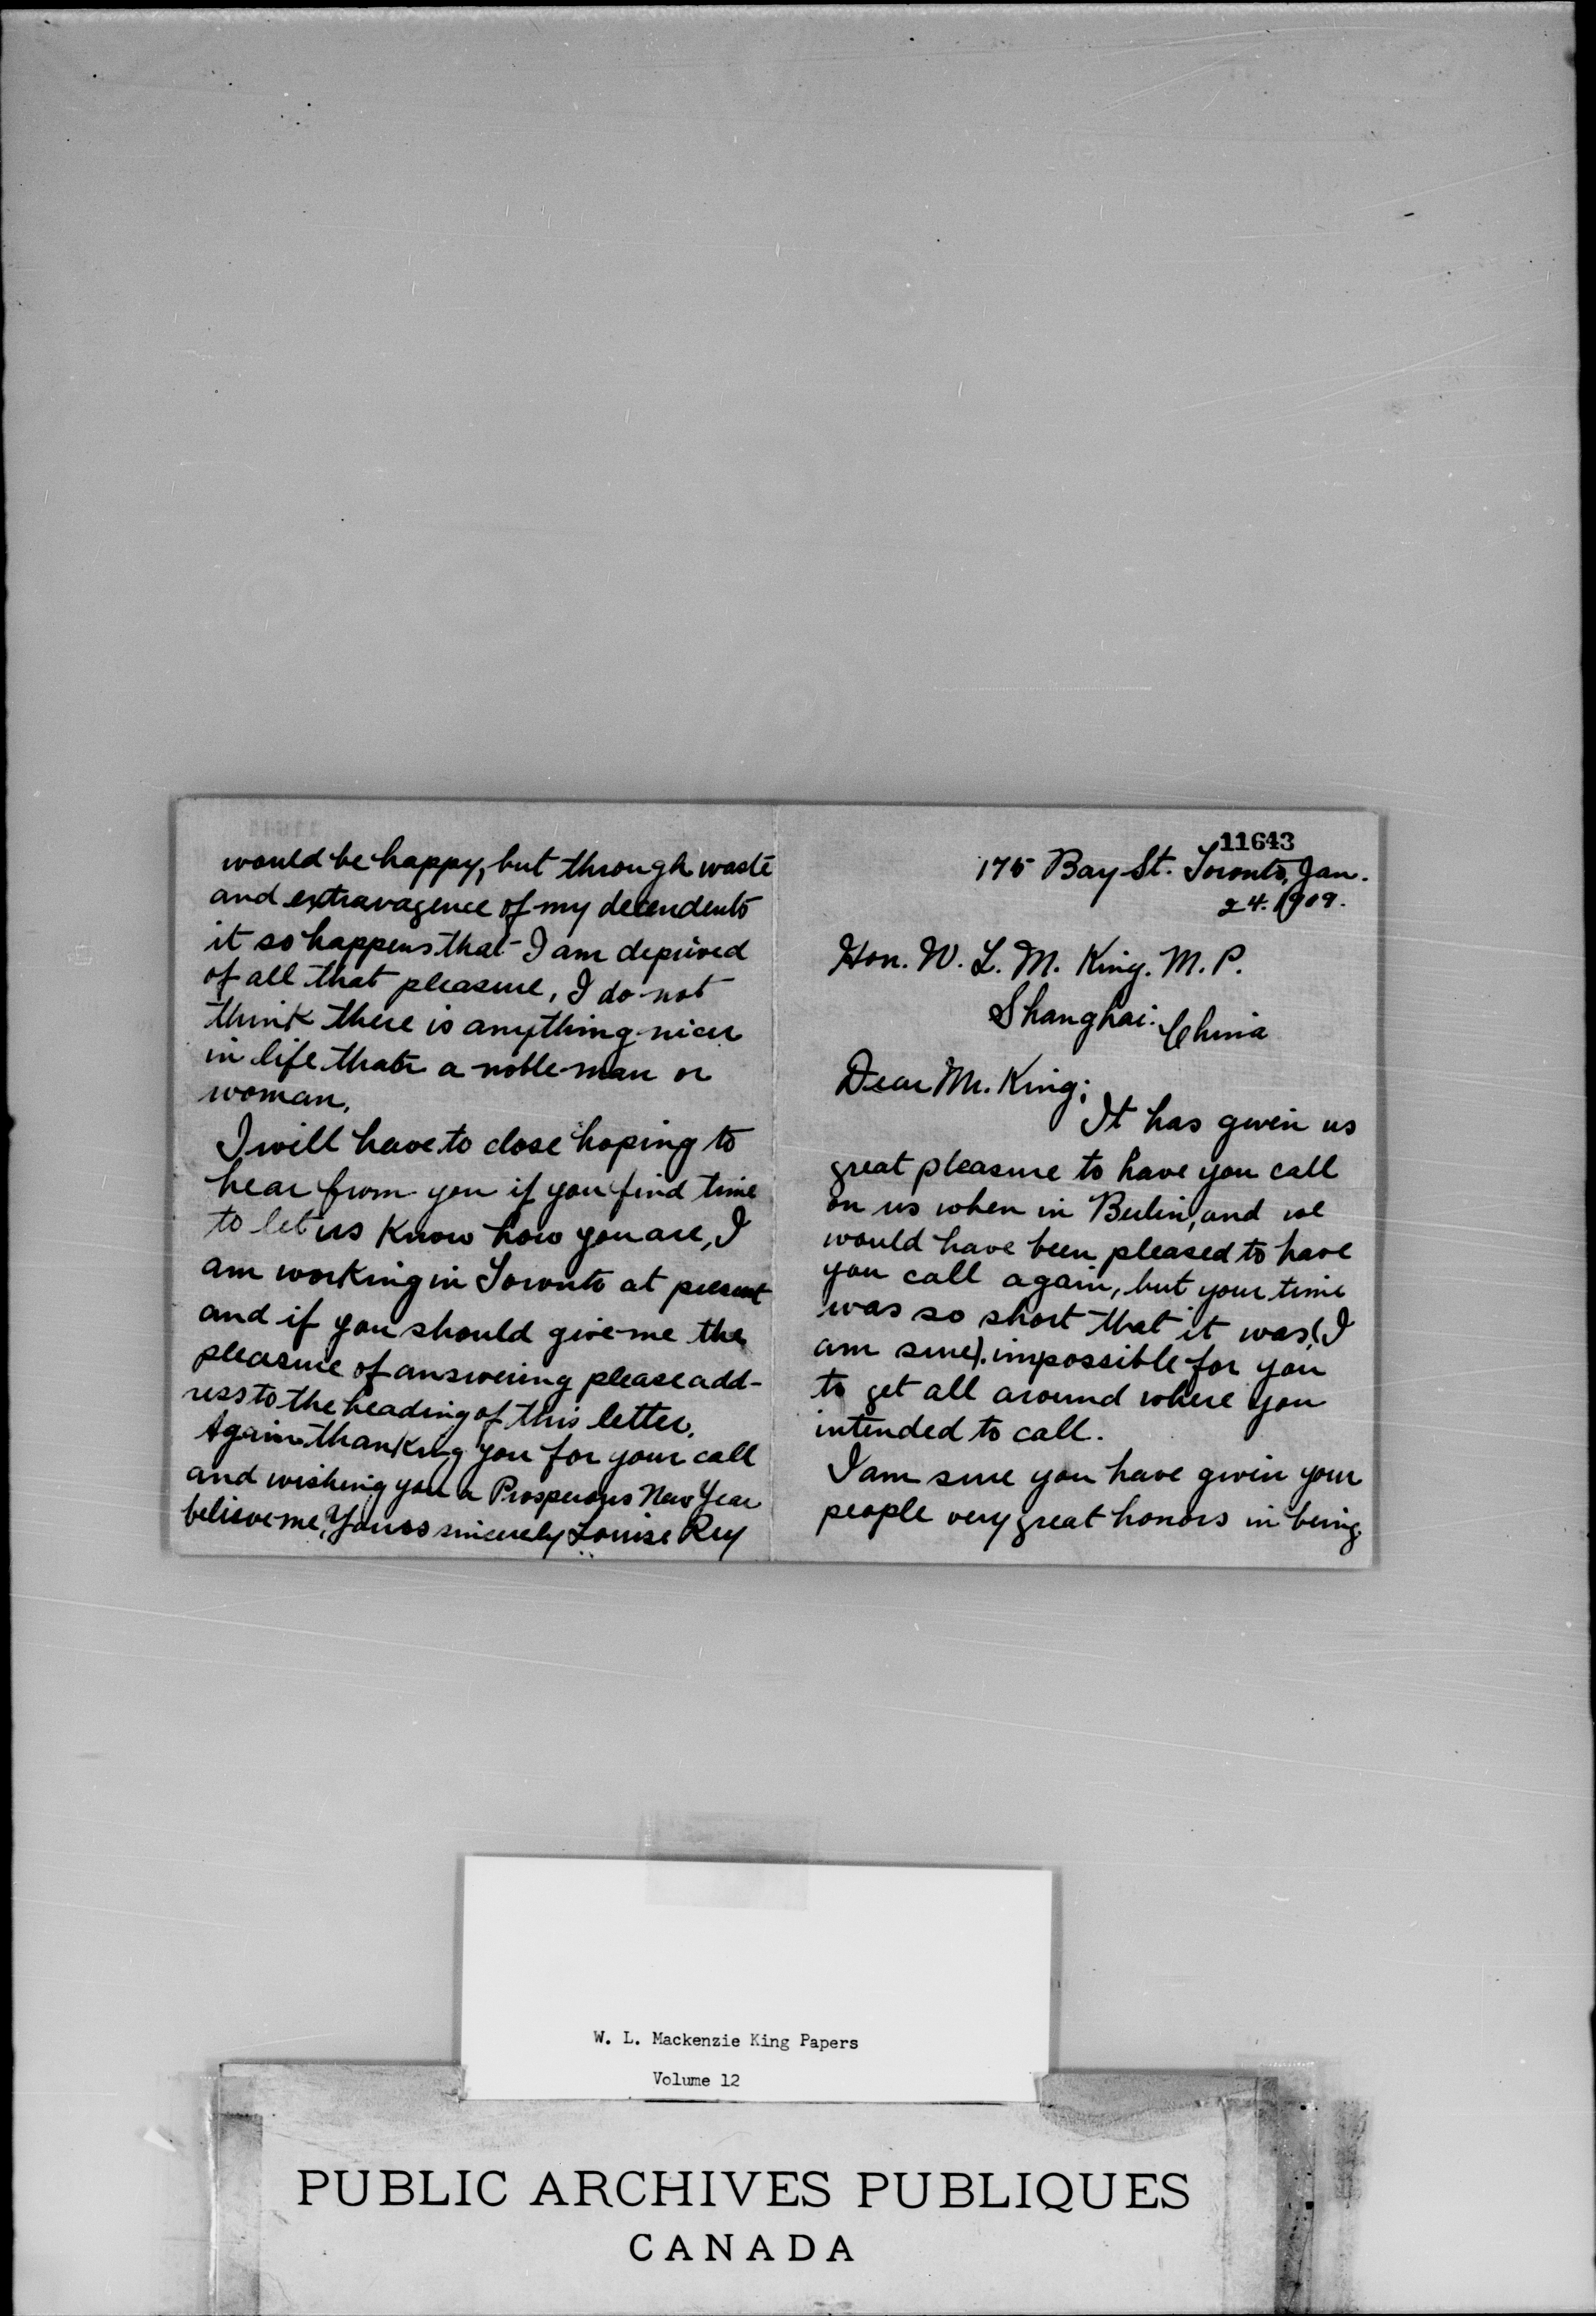 would be happy, but through waste
and extravagence of my decendents
it so happens that I am deprived
of all that pleasure, I do not
think there is anything nicer
in life than a noble man or
woman.
I will have to close hoping to
hear from you if you find time
to let us know how you are, I
am working in Toronto at present
and if you should give me the
pleasure of answering please add-
ress to the heading of this letter.
Again thanking you for your call
and wishing you a Prosperous New Year
believe me, Yours sincerely Louise
11643
175 Bay St. Toronto, Jan.
24. 1909.
Hon. W. L. M. King. M. P.
Shanghai. China
Dear Mr. King;
It has given us
great pleasure to have you call
on us when in Berlin, and we
would have been pleased to have
you call again, but your time
was so short that it was (I
am sure). impossible for you
to get all around where you
intended to call.
I am sure you have given your
people very great honors in being
W. L. Mackenzie King Papers
Volume 12
PUBLIC ARCHIVES PUBLIQUES
CANADA